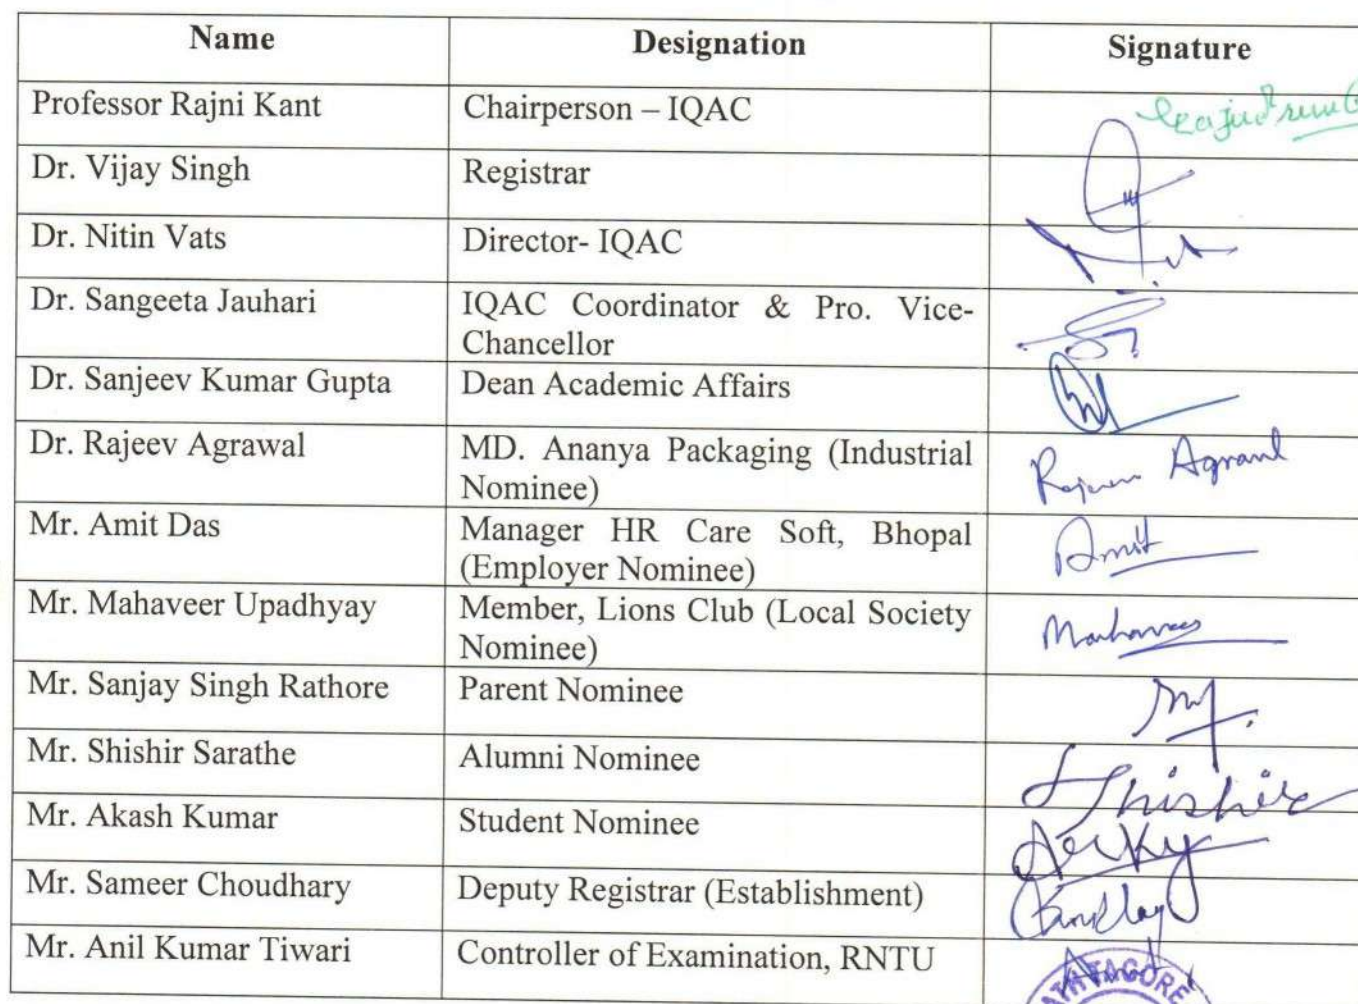 Name Designation Signature
Professor Rajni Kant Chairperson – IQAC
Dr. Vijay Singh Registrar
Dr. Nitin Vats Director- IQAC
Dr. Sangeeta Jauhari IQAC Coordinator & Pro. Vice-
Chancellor
Dr. Sanjeev Kumar Gupta Dean Academic Affairs
Dr. Rajeev Agrawal MD. Ananya Packaging (Industrial
Nominee)
Mr. Amit Das Manager HR Care Soft, Bhopal Amit
(Employer Nominee)
Mr. Mahaveer Upadhyay Member, Lions Club (Local Society
Nominee)
Mr. Sanjay Singh Rathore Parent Nominee
Mr. Shishir Sarathe Alumni Nominee Shishir
Mr. Akash Kumar Student Nominee
Mr. Sameer Choudhary Deputy Registrar (Establishment)
Mr. Anil Kumar Tiwari Controller of Examination, RNTU